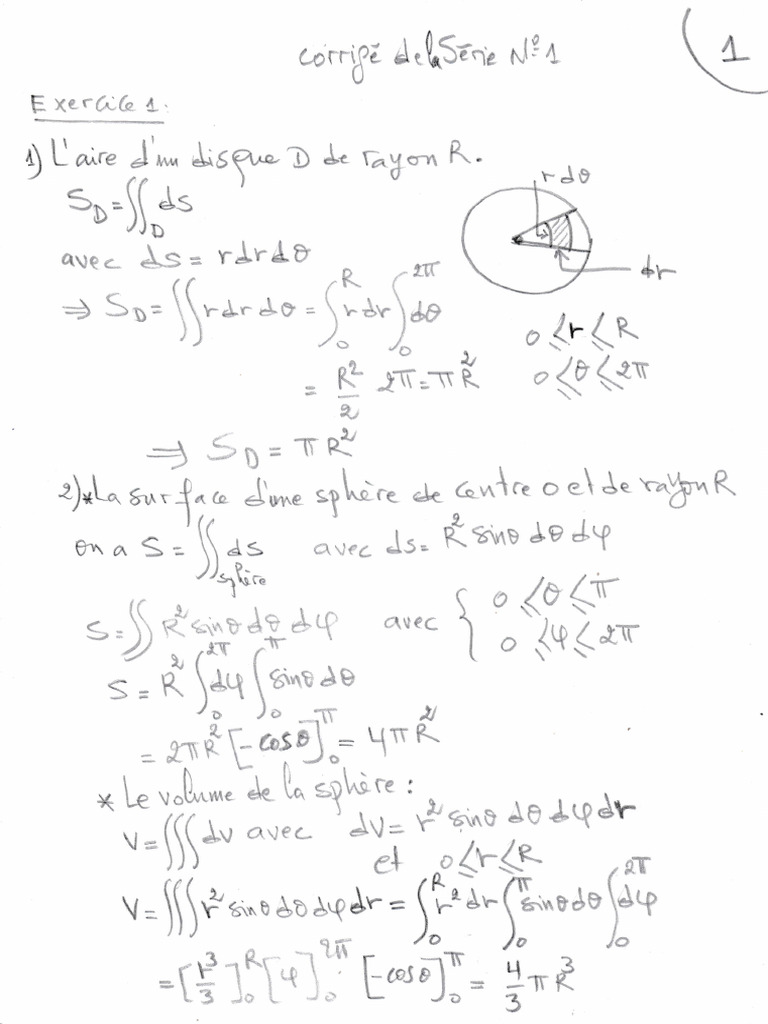 corrigé de la Série N°1
1
Exercice 1:
1) L'aire d'un disque D de rayon R.
S_D = ∬_D ds
rdθ
avec ds = r dr dθ
dr
⇒ S_D = ∬ r dr dθ = ∫_0^R r dr ∫_0^{2π} dθ
0 ≤ r ≤ R
= R²/2 2π = πR²
0 ≤ θ ≤ 2π
⇒ S_D = πR²
2) * La surface d'une sphère de centre o et de rayon R
on a S = ∬_{sphère} ds avec ds = R² sinθ dθ dφ
S = ∬ R² sinθ dθ dφ avec { 0 ≤ θ ≤ π
0 ≤ φ ≤ 2π
S = R² ∫_0^{2π} dφ ∫_0^π sinθ dθ
= 2πR² [-cosθ]_0^π = 4πR²
* Le volume de la sphère :
V = ∭ dv avec dv = r² sinθ dθ dφ dr
et 0 ≤ r ≤ R
V = ∭ r² sinθ dθ dφ dr = ∫_0^R r² dr ∫_0^π sinθ dθ ∫_0^{2π} dφ
= [r³/3]_0^R [φ]_0^{2π} [-cosθ]_0^π = 4/3 πR³